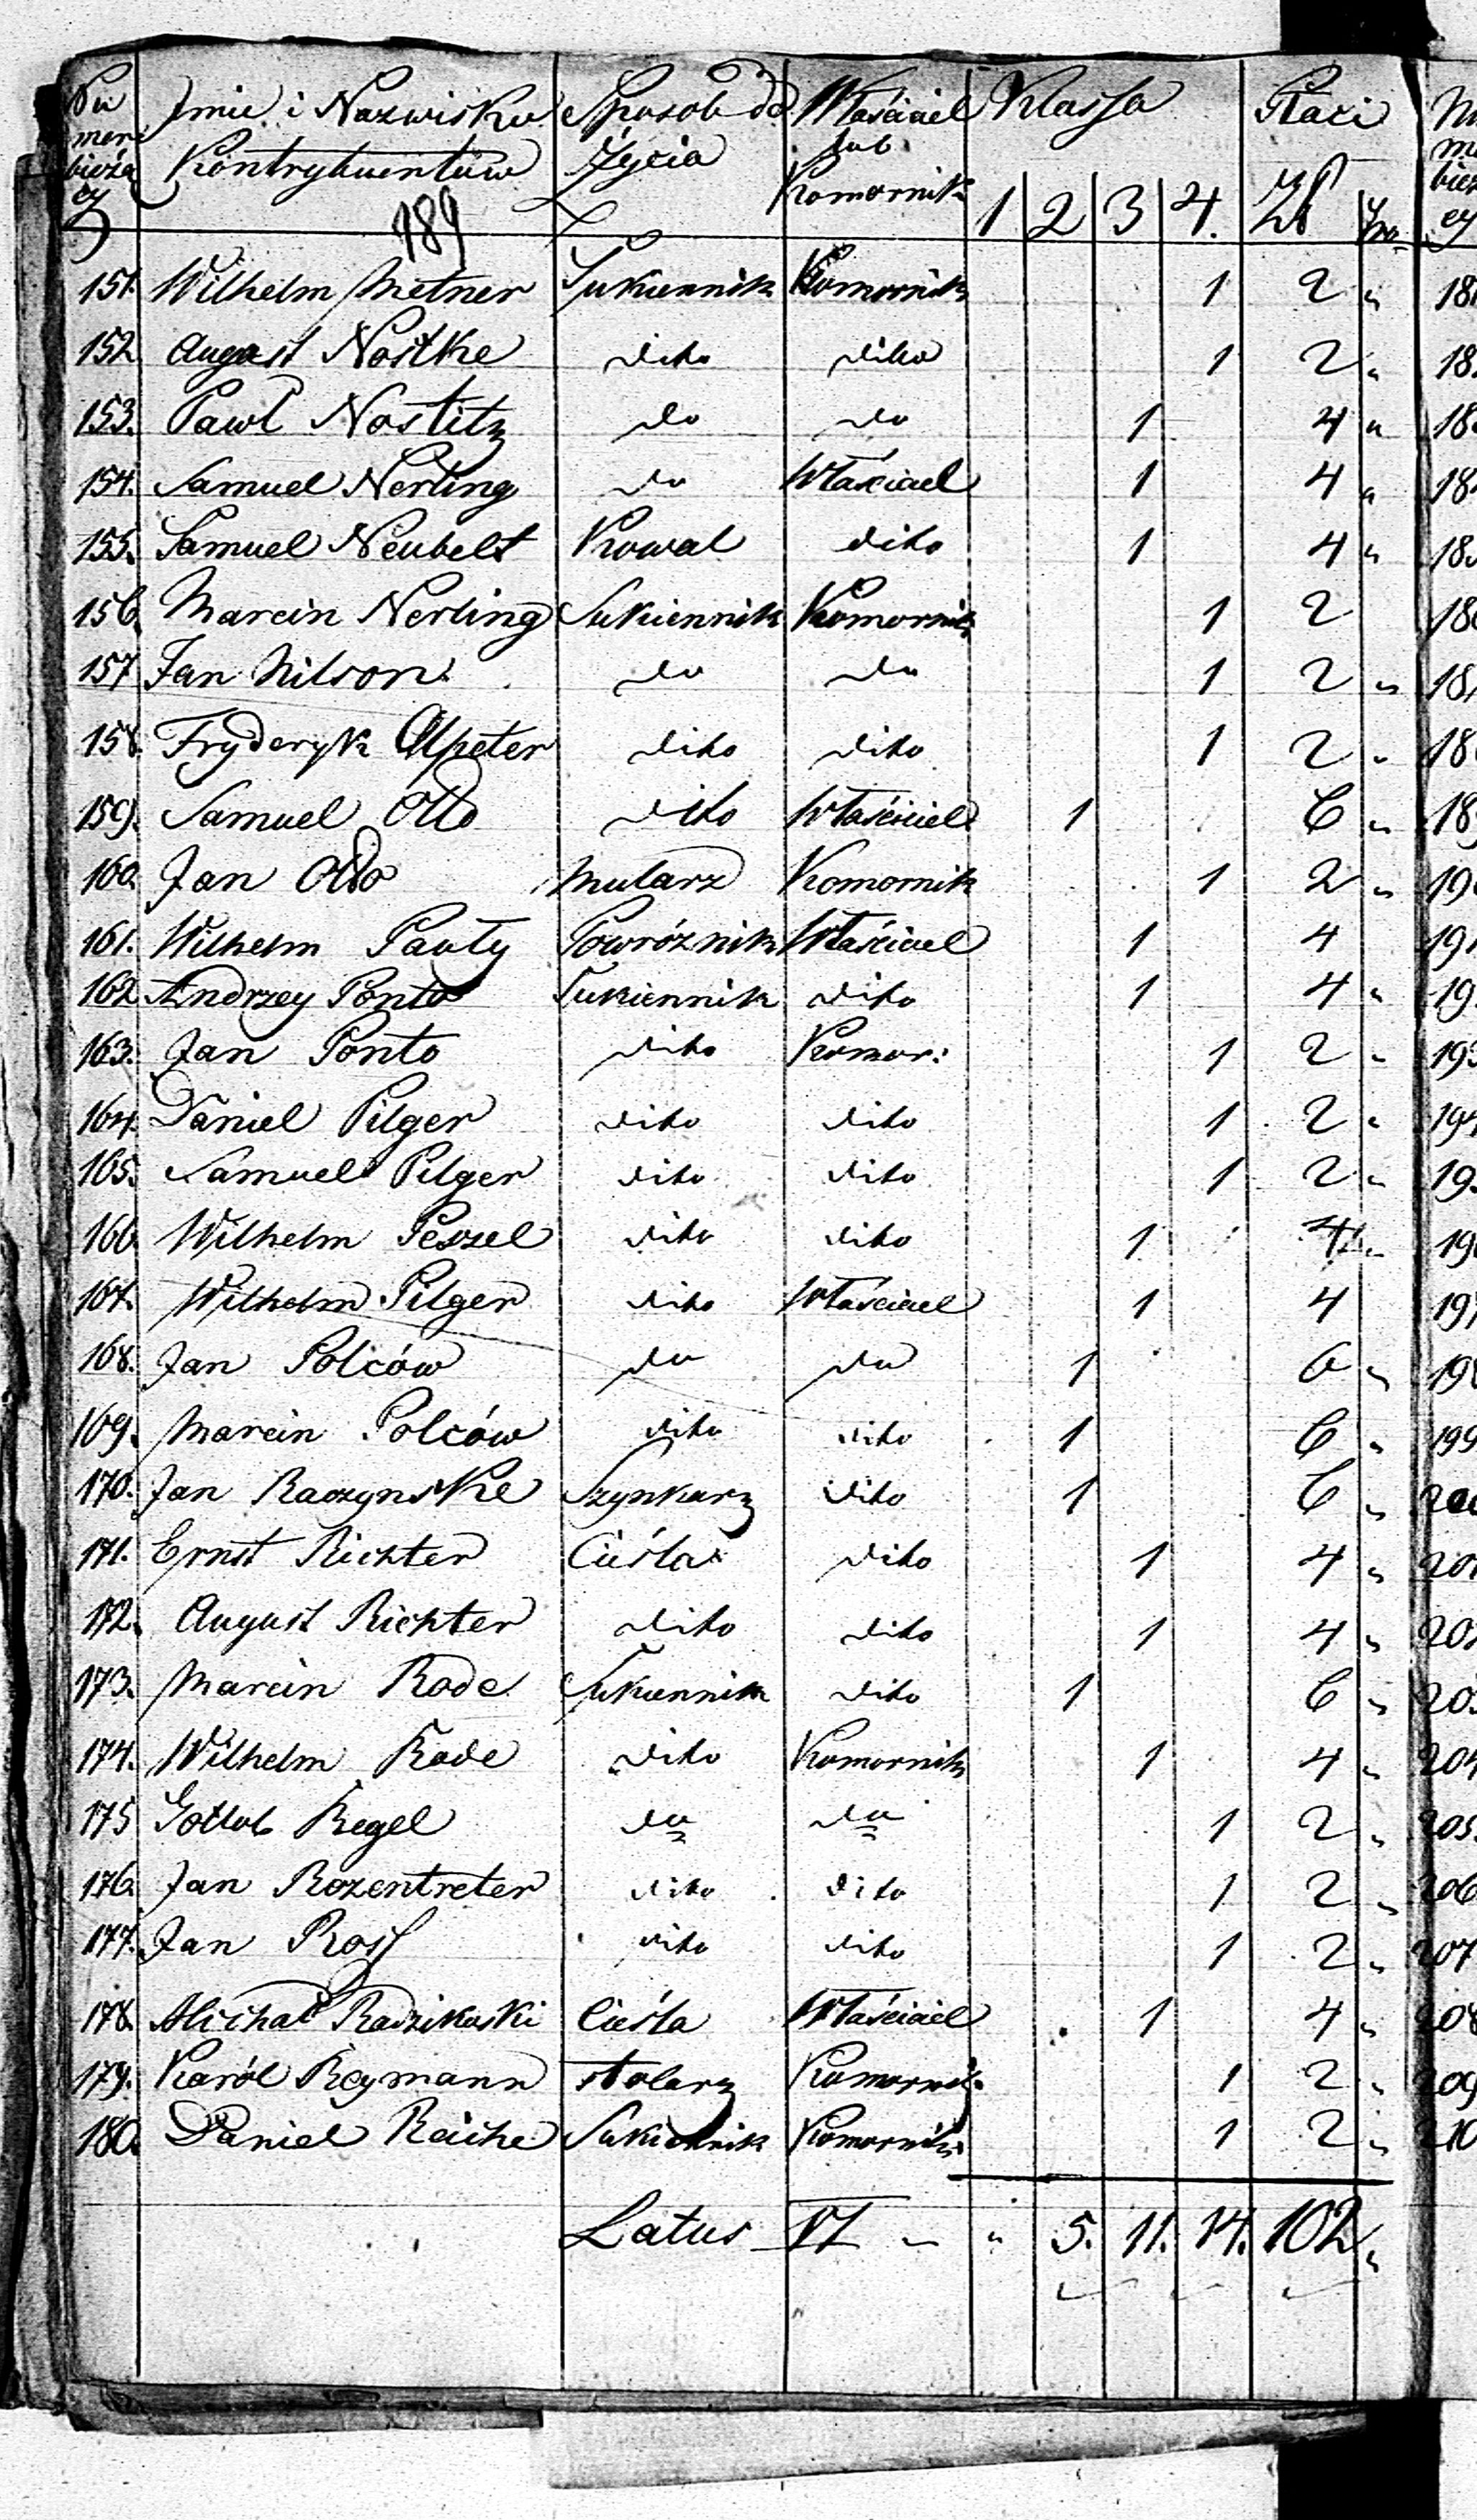 Nu Imie i Nazwisko Sposob do Właściciel Klassa Płaci
meri Kontrybuentów Życia lub
bieżą Komornik 1 2 3 4. Zł gro
cy 189
151. Wilhelm Metner Sukiennik Komornik 1 2 "
152 August Nostke dito dito 1 2 "
153. Pawł Nostitz do do 1 4 "
154. Samuel Nerling do Właściciel 1 4 "
155. Samuel Neubelt Kowal dito 1 4 "
156. Marcin Nerling Sukiennik Komornik 1 2
157 Jan Nilson do do 1 2 "
158. Fryderyk Olpeter dito dito 1 2 "
159. Samuel Otto dito Właściciel 1 6 "
160. Jan Otto Mularz Komornik 1 2 "
161. Wilhelm Pauly Powróźnik Właściciel 1 4
162. Andrzey Ponto Sukiennik dito 1 4 "
163. Jan Ponto dito Komor: 1 2 "
164. Daniel Pilger dito dito 1 2 "
165. Samuel Pilger dito dito 1 2 "
166 Wilhelm Peszel dito dito 1 4 "
167. Wilhelm Pilger dito Właściciel 1 4
168. Jan Polców do do 1 6 "
169. Marcin Polców dito dito 1 6 "
170. Jan Raczynske Szynkarz dito 1 6 "
171. Ernst Richter Cieśla dito 1 4 "
172. August Richter dito dito 1 4 "
173. Marcin Rode Sukiennik dito 1 6 "
174. Wilhelm Rode dito Komornik 1 4 "
175 Gottlob Regel do do 1 2 "
176. Jan Rozentreter dito dito 1 2 "
177. Jan Ross dito dito 1 2 "
178. Michał Radzikoski Cieśla Właściciel 1 4 "
179. Karól Reymann stolarz Komornik 1 2 "
180. Daniel Reiche Sukiennik Komornik 1 2 "
Latus VI " " 5. 11. 14. 102 "